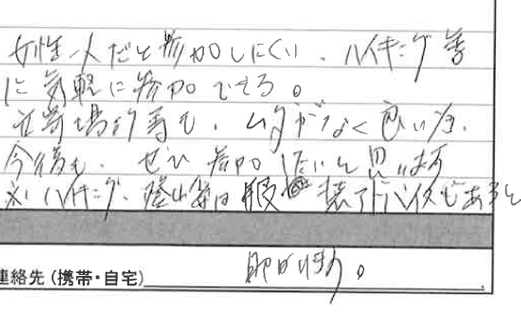 女性一人だと参加しにくい、ハイキング等
に気軽に参加できる。
立寄場所等も、ムダがなく良い為、
今後も、ぜひ参加したいと思います
※ハイキング、登山等は服装アドバイスがあると
助かります。
連絡先(携帯・自宅)